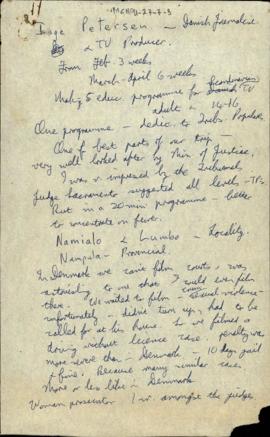 Inge Petersen - Danish Journalist
& TV Producer.
From Feb. 3 weeks
March-April 6 weeks
Making 5 educ. programme for Scandinavian TV
adult & 14-16
One programme - dedic. to Tribs. Populares
One of best parts of our trip -
very well looked after by Min. of Justice.
I was v. impressed by the Tribunals
Judge Sacramento suggested all levels - TPs
Put in a 20 min. programme - better
to concentrate on fewer.
Namialo & Lumbo - Locality.
Nampula - Provincial.
In Denmark we can't film courts, was
astonishing to me that I could even film
there. We wanted to film - sexual violence -
unfortunately - didn't turn up, had to be
called for at his house. So we filmed a
driving without licence case. penalty was
more severe than in Denmark - 10 days jail
& fine. Because many similar cases.
More or less like in Denmark
Woman prosecutor 1 w. amongst the judges